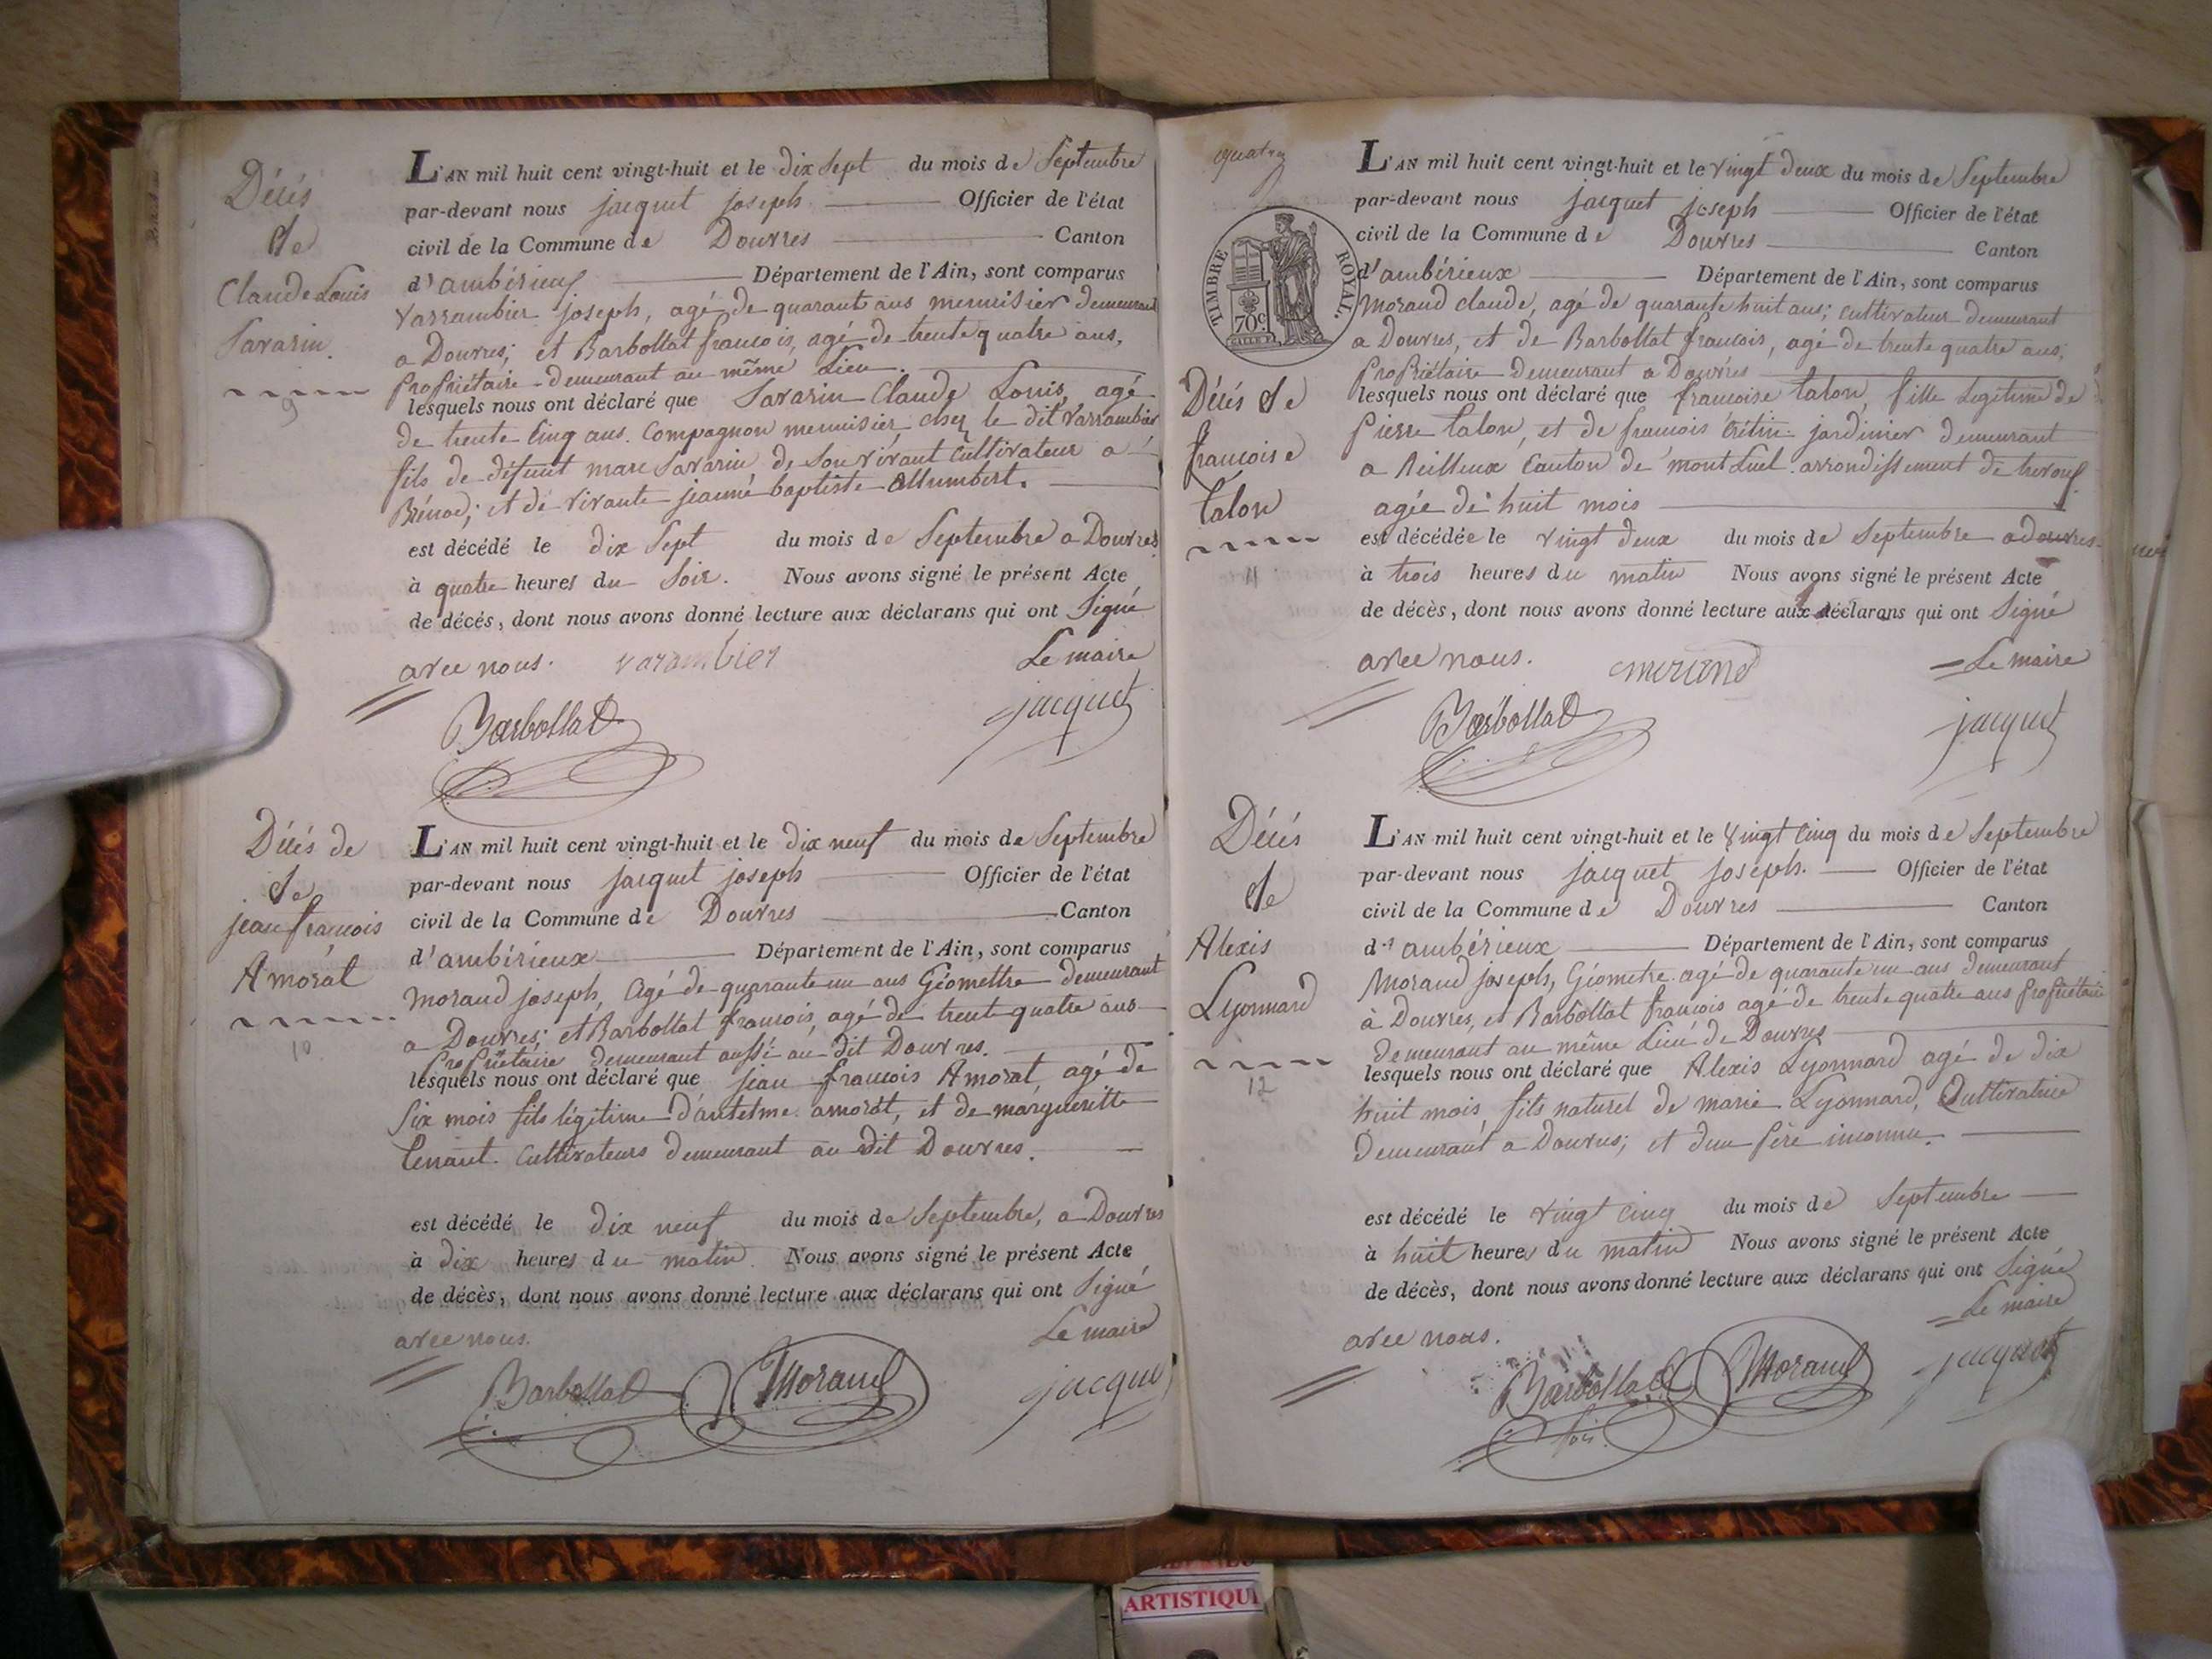 Décés
de
Claude Louis
Savarin.
9
L'AN mil huit cent vingt-huit et le dix Sept du mois de Septembre
par-devant nous jacquet joseph Officier de l'état
civil de la Commune de Douvres Canton
d'ambérieux Département de l'Ain, sont comparus
Varrambier joseph, agé de quarant ans menuisier demeurant
a Douvres; et Barbollat francois, agé de trente quatre ans,
Propriétaire demeurant au même Lieu.
lesquels nous ont déclaré que Savarin Claude Louis, agé
de trente Cinq ans. Compagnon menuisier chez le dit Varrambier
fils de défunt marc Savarin de Son vivant Cultivateur a
Brénod; et de vivante jeanne baptiste allumbert.
est décédé le dix Sept du mois de Septembre a Douvres
à quatre heures du Soir. Nous avons signé le présent Acte
de décés, dont nous avons donné lecture aux déclarans qui ont Signé
avec nous. varambier Le maire
Barbollat jacquet
Décés de
de
jean francois
Amorat
10
L'AN mil huit cent vingt-huit et le dix neuf du mois de Septembre
par-devant nous jacquet joseph Officier de l'état
civil de la Commune de Douvres Canton
d'ambérieux Département de l'Ain, sont comparus
morand joseph, agé de quarante un ans Géomettre demeurant
a Douvres; et Barbollat francois, agé de trente quatre ans
Propriétaire demeurant aussi au dit Douvres.
lesquels nous ont déclaré que jean francois Amorat, agé de
Six mois fils légitime d'antelme amorat, et de margueritte
tenant Cultivateurs demeurant au dit Douvres.
est décédé le dix neuf du mois de Septembre, a Douvres
à dix heures du matin. Nous avons signé le présent Acte
de décès, dont nous avons donné lecture aux déclarans qui ont Signé
avec nous. Le maire
Barbollat Morand jacquet
quatre
TIMBRE ROYAL.
70c.
Décés de
francoise
talon
11
L'AN mil huit cent vingt-huit et le vingt deux du mois de Septembre
par-devant nous jacquet joseph Officier de l'état
civil de la Commune de Douvres Canton
d'ambérieux Département de l'Ain, sont comparus
Morand claude, agé de quarante huit ans; cultivateur demeurant
a Douvres, et de Barbollat francois, agé de trente quatre ans,
Propriétaire demeurant a Douvres
lesquels nous ont déclaré que francoise talon, fille Legitime de
Pierre talon, et de francois crétin jardinier demeurant
a Reilleux Canton de mont Luel arrondissement de trevoux
agée de huit mois
est décédée le vingt deux du mois de Septembre a douvres
à trois heures du matin Nous avons signé le présent Acte
de décès, dont nous avons donné lecture aux déclarans qui ont Signé
avec nous. morand Le maire
Barbollat jacquet
Décés
de
Alexis
Lyonnard
12
L'AN mil huit cent vingt-huit et le Vingt Cinq du mois de Septembre
par-devant nous jacquet joseph. Officier de l'état
civil de la Commune de Douvres Canton
d'ambérieux Département de l'Ain, sont comparus
Morand joseph, Géometre agé de quarante un ans demeurant
à Douvres, et Barbollat francois agé de trente quatre ans Propriétaire
demeurant au même Lieu de Douvres
lesquels nous ont déclaré que Alexis Lyonnard agé de dix
huit mois, fils naturel de marie Lyonnard, Cultivatrice
Demeurant a Douvres; et dun père inconnu.
est décédé le vingt cinq du mois de Septembre
à huit heures du matin Nous avons signé le présent Acte
de décès, dont nous avons donné lecture aux déclarans qui ont Signé
Le maire
avec nous.
Barbollat Morand jacquet
fois
ARTISTIQU